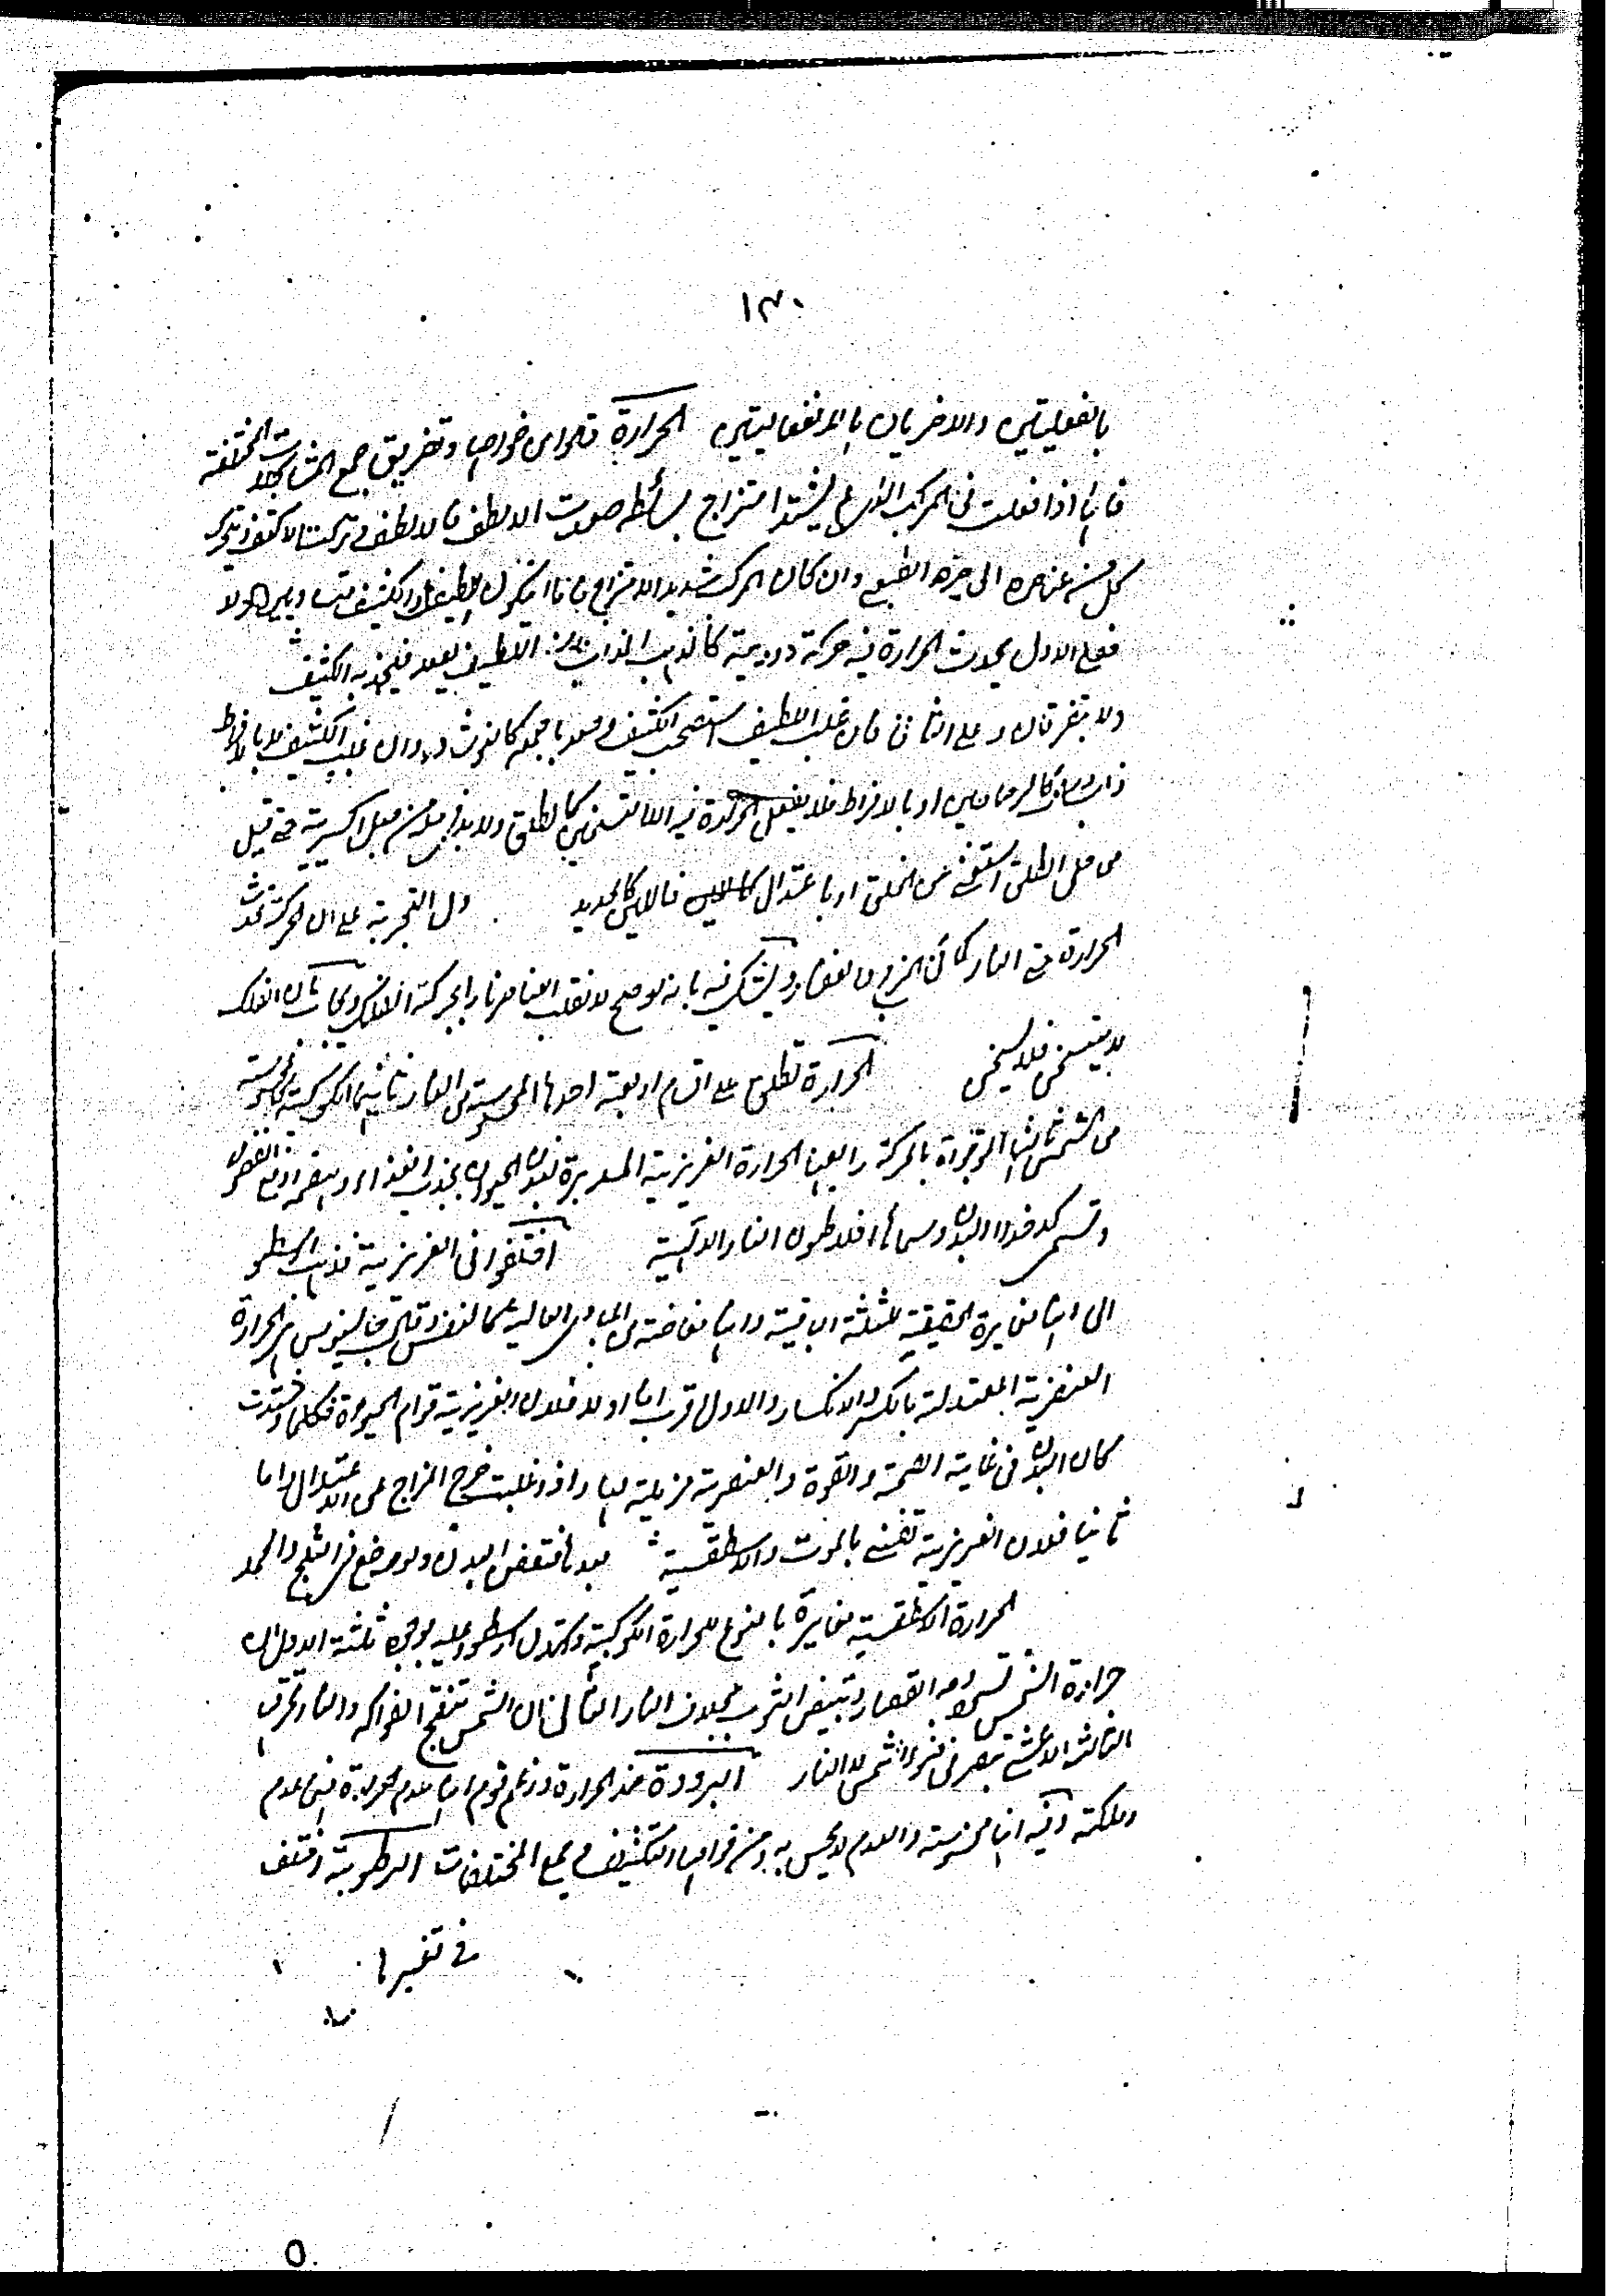 ١٣٠
بالفعليتين والاخريان بالانفعاليتين الحرارة قالوا من خواصها وتفريق جمع المتشاكلات المختلفة
فانها اذا فعلت في المركب الذي لم يشتد امتزاج بسائطه صعدت الالطف فالالطف وتركت الاكثف فيتحرك
كل من عناصره الى حيزه الطبيعي وان كان المركب شديد الامتزاج فاما ان يكون اللطيف والكثيف متساويين او لا
فعلى الاول يحدث الحرارة فيه حركة دورية كالذهب الذائب اللطيف يصعد فيجذبه الكثيف
ولا يتفرقان وعلى الثاني فان غلب اللطيف استصحب الكثيف وصعد بالجملة كالنوشادر وان غلب الكثيف لا بالافراط
ذاب كالرصاصين او بالافراط فلا يفعل الحرارة فيه الا التسخين كالطلق ولا يذاب من حيل اكسيرية حتى قيل
من حل الطلق استغنى عن الخلق او باعتدال فالتليين كالحديد دل التجربة على ان الحركة تحدث
الحرارة حتى النار كما في ويشكك فيه بانه لو صح لانقلب العناصر نارا بحركة الفلك ويجاب بان الفلك
لا يتسخن فلا يسخن الحرارة تطلق على اقسام اربعة احدها المحسوسة من النار ثانيها الكوكبية المحسوسة
من الشمس ثالثها الموجودة بالحركة رابعها الحرارة الغريزية المدبرة لبدن الحيوان بجذب الغذاء وهضمه ودفع الفضول
وتسمى كدخداء البدن وسماها افلاطون النار الالهية اختلفوا في الغريزية فذهب ارسطو
الى انها مغايرة الحقيقة للثلثة الباقية وانها فائضة من المبادي العالية كالنفس وقال جالينوس هي الحرارة
العنصرية المعتدلة بالكسر والانكسار والاول اقرب اما اولا فلان الغريزية قوام الحيوة فكلما اشتدت
كان البدن في غاية الصحة والقوة والعنصرية مزيلة لها واذا غلبت خرج المزاج عن الاعتدال واما
ثانيا فلان الغريزية تفنى بالموت والاسطقسية بعدها فتعفن البدن ولو وضع في الثلج والجمد
الحرارة الاسطقسية مغايرة بالنوع للحرارة الكوكبية واستدل ارسطو عليه بوجوه ثلثة الاول ان
حرارة الشمس تسود وجه القصار وتبيض الثوب بخلاف النار الثاني ان الشمس تنضج الفواكه والنار تحرقها
الثالث الاعشى يبصر في ضوء الشمس لا النار البرودة ضد الحرارة وزعم قوم انها عدم الحرارة فبينهما عدم
وملكة وفيه انها محسوسة والعدم لا يحس به ومن خواصها التكثيف وجمع المختلفات الرطوبة اختلف
في تفسيرها